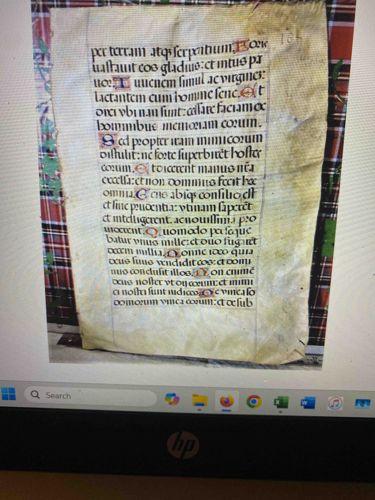 161
per terram atq; serpentium. Foris
vastauit eos gladius: et intus pa
uor: Iuuenem simul ac virginez:
lactantem cum homine sene. Et
dixi vbi nam sunt: cessare faciam ex
hominibus memoriam eorum.
Sed propter iram inimicorum
distulit: ne forte superbirēt hostes
eorum. Et dicerent manus nr̄a
excelsa: et non dominus fecit hec
omnia. Gens absq; consilio est
et sine prudentia: vtinam saperēt
et intelligerent. ac nouissima pro
uiderent. Quomodo perseque
batur vnus mille: et duo fugarēt
decem millia. Nonne ideo quia
deus suus vendidit eos: et domi
nus conclusit illos. Non enim ē
deus noster vt dii eorum: et inimi
ci nostri sunt iudices. De vinea so
domorum vinea eorum: et de sub
Search
hp